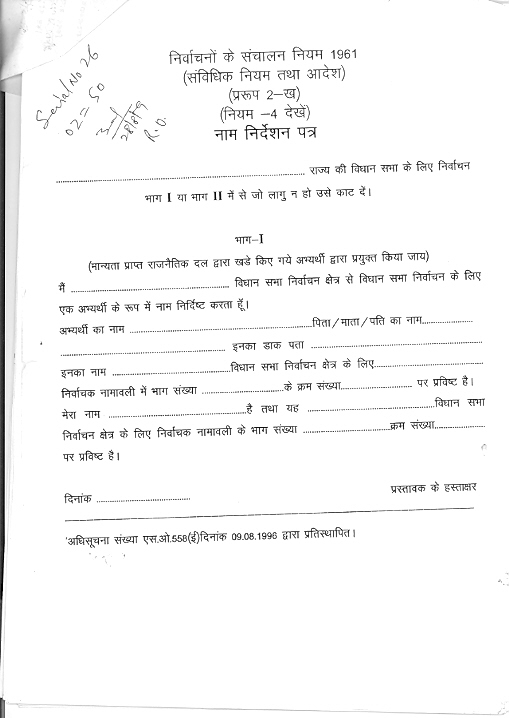 Serial No 26
02=50
R.O.
निर्वाचनों के संचालन नियम 1961
(संविधिक नियम तथा आदेश)
(प्ररूप 2–ख)
(नियम –4 देखें)
नाम निर्देशन पत्र
........................ राज्य की विधान सभा के लिए निर्वाचन
भाग I या भाग II में से जो लागु न हो उसे काट दें।
भाग–I
(मान्यता प्राप्त राजनैतिक दल द्वारा खडे किए गये अभ्यर्थी द्वारा प्रयुक्त किया जाय)
मैं ........................ विधान सभा निर्वाचन क्षेत्र से विधान सभा निर्वाचन के लिए
एक अभ्यर्थी के रूप में नाम निर्दिष्ट करता हूँ।
अभ्यर्थी का नाम ........................पिता/माता/पति का नाम................
........................ इनका डाक पता ........................
इनका नाम ........................विधान सभा निर्वाचन क्षेत्र के लिए........................
निर्वाचक नामावली में भाग संख्या ........................के क्रम संख्या........................ पर प्रविष्ट है।
मेरा नाम ........................है तथा यह ........................विधान सभा
निर्वाचन क्षेत्र के लिए निर्वाचक नामावली के भाग संख्या ........................क्रम संख्या................
पर प्रविष्ट है।
दिनांक ........................
प्रस्तावक के हस्ताक्षर
'अधिसूचना संख्या एस.ओ.558(ई)दिनांक 09.08.1996 द्वारा प्रतिस्थापित।